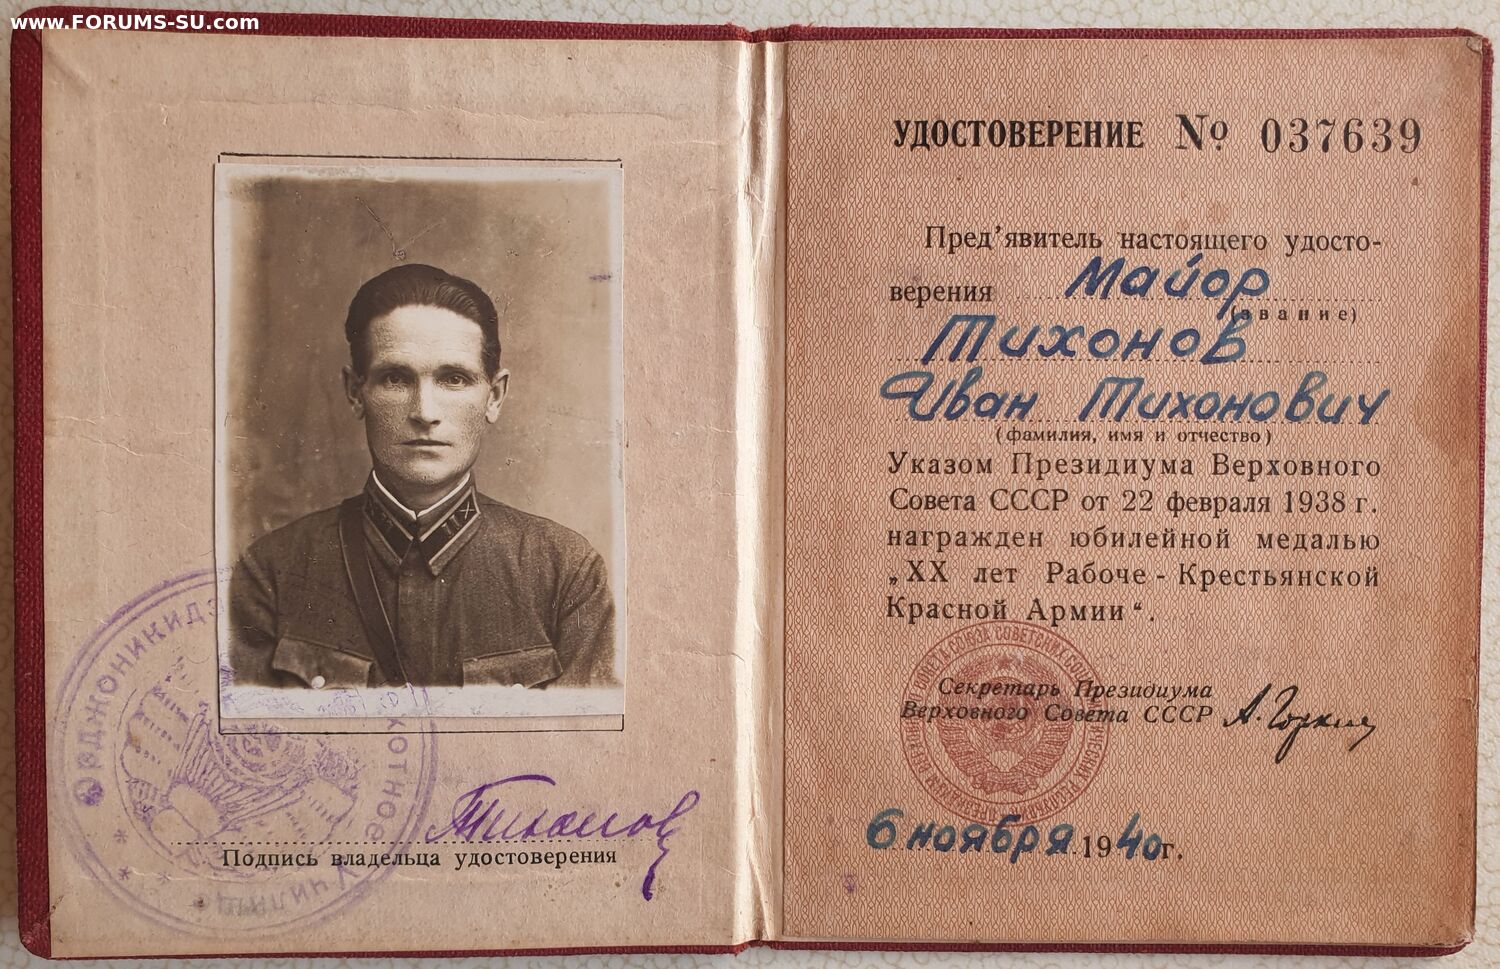 www.FORUMS-SU.com
Подпись владельца удостоверения
Тихонов
ОРДЖОНИКИДЗ
ХОТНОЕ
УЧИЛИЩЕ
УДОСТОВЕРЕНИЕ № 037639
Пред'явитель настоящего удосто-
верения Майор
(звание)
Тихонов
Иван Тихонович
(фамилия, имя и отчество)
Указом Президиума Верховного
Совета СССР от 22 февраля 1938 г.
награжден юбилейной медалью
„ХХ лет Рабоче - Крестьянской
Красной Армии“.
Секретарь Президиума
Верховного Совета СССР А. Горкин
6 ноября 1940 г.